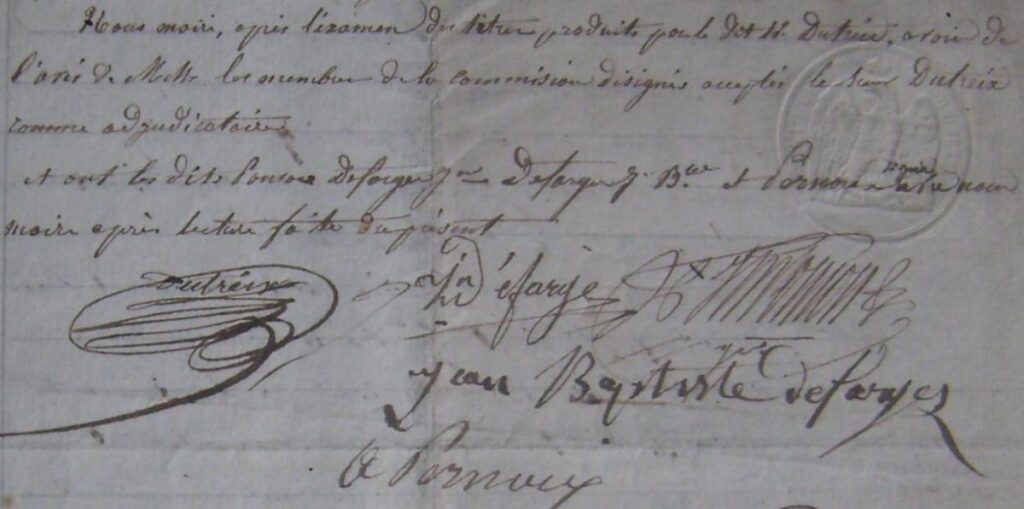 Nous maire, après l'éxamen des titres produits par le dit Sr. Dutreix, avons de
l'avis de Mrs. les membres de la commission désignés accepté le Sieur Dutreix
comme adjudicataire.
et ont les dits Defarge Jn Defarge J. Bte et Pornoux signé avec nous
maire après lecture faite du présent
Dutréix
Jn Défarge
jean Baptiste defarges
Pornoux